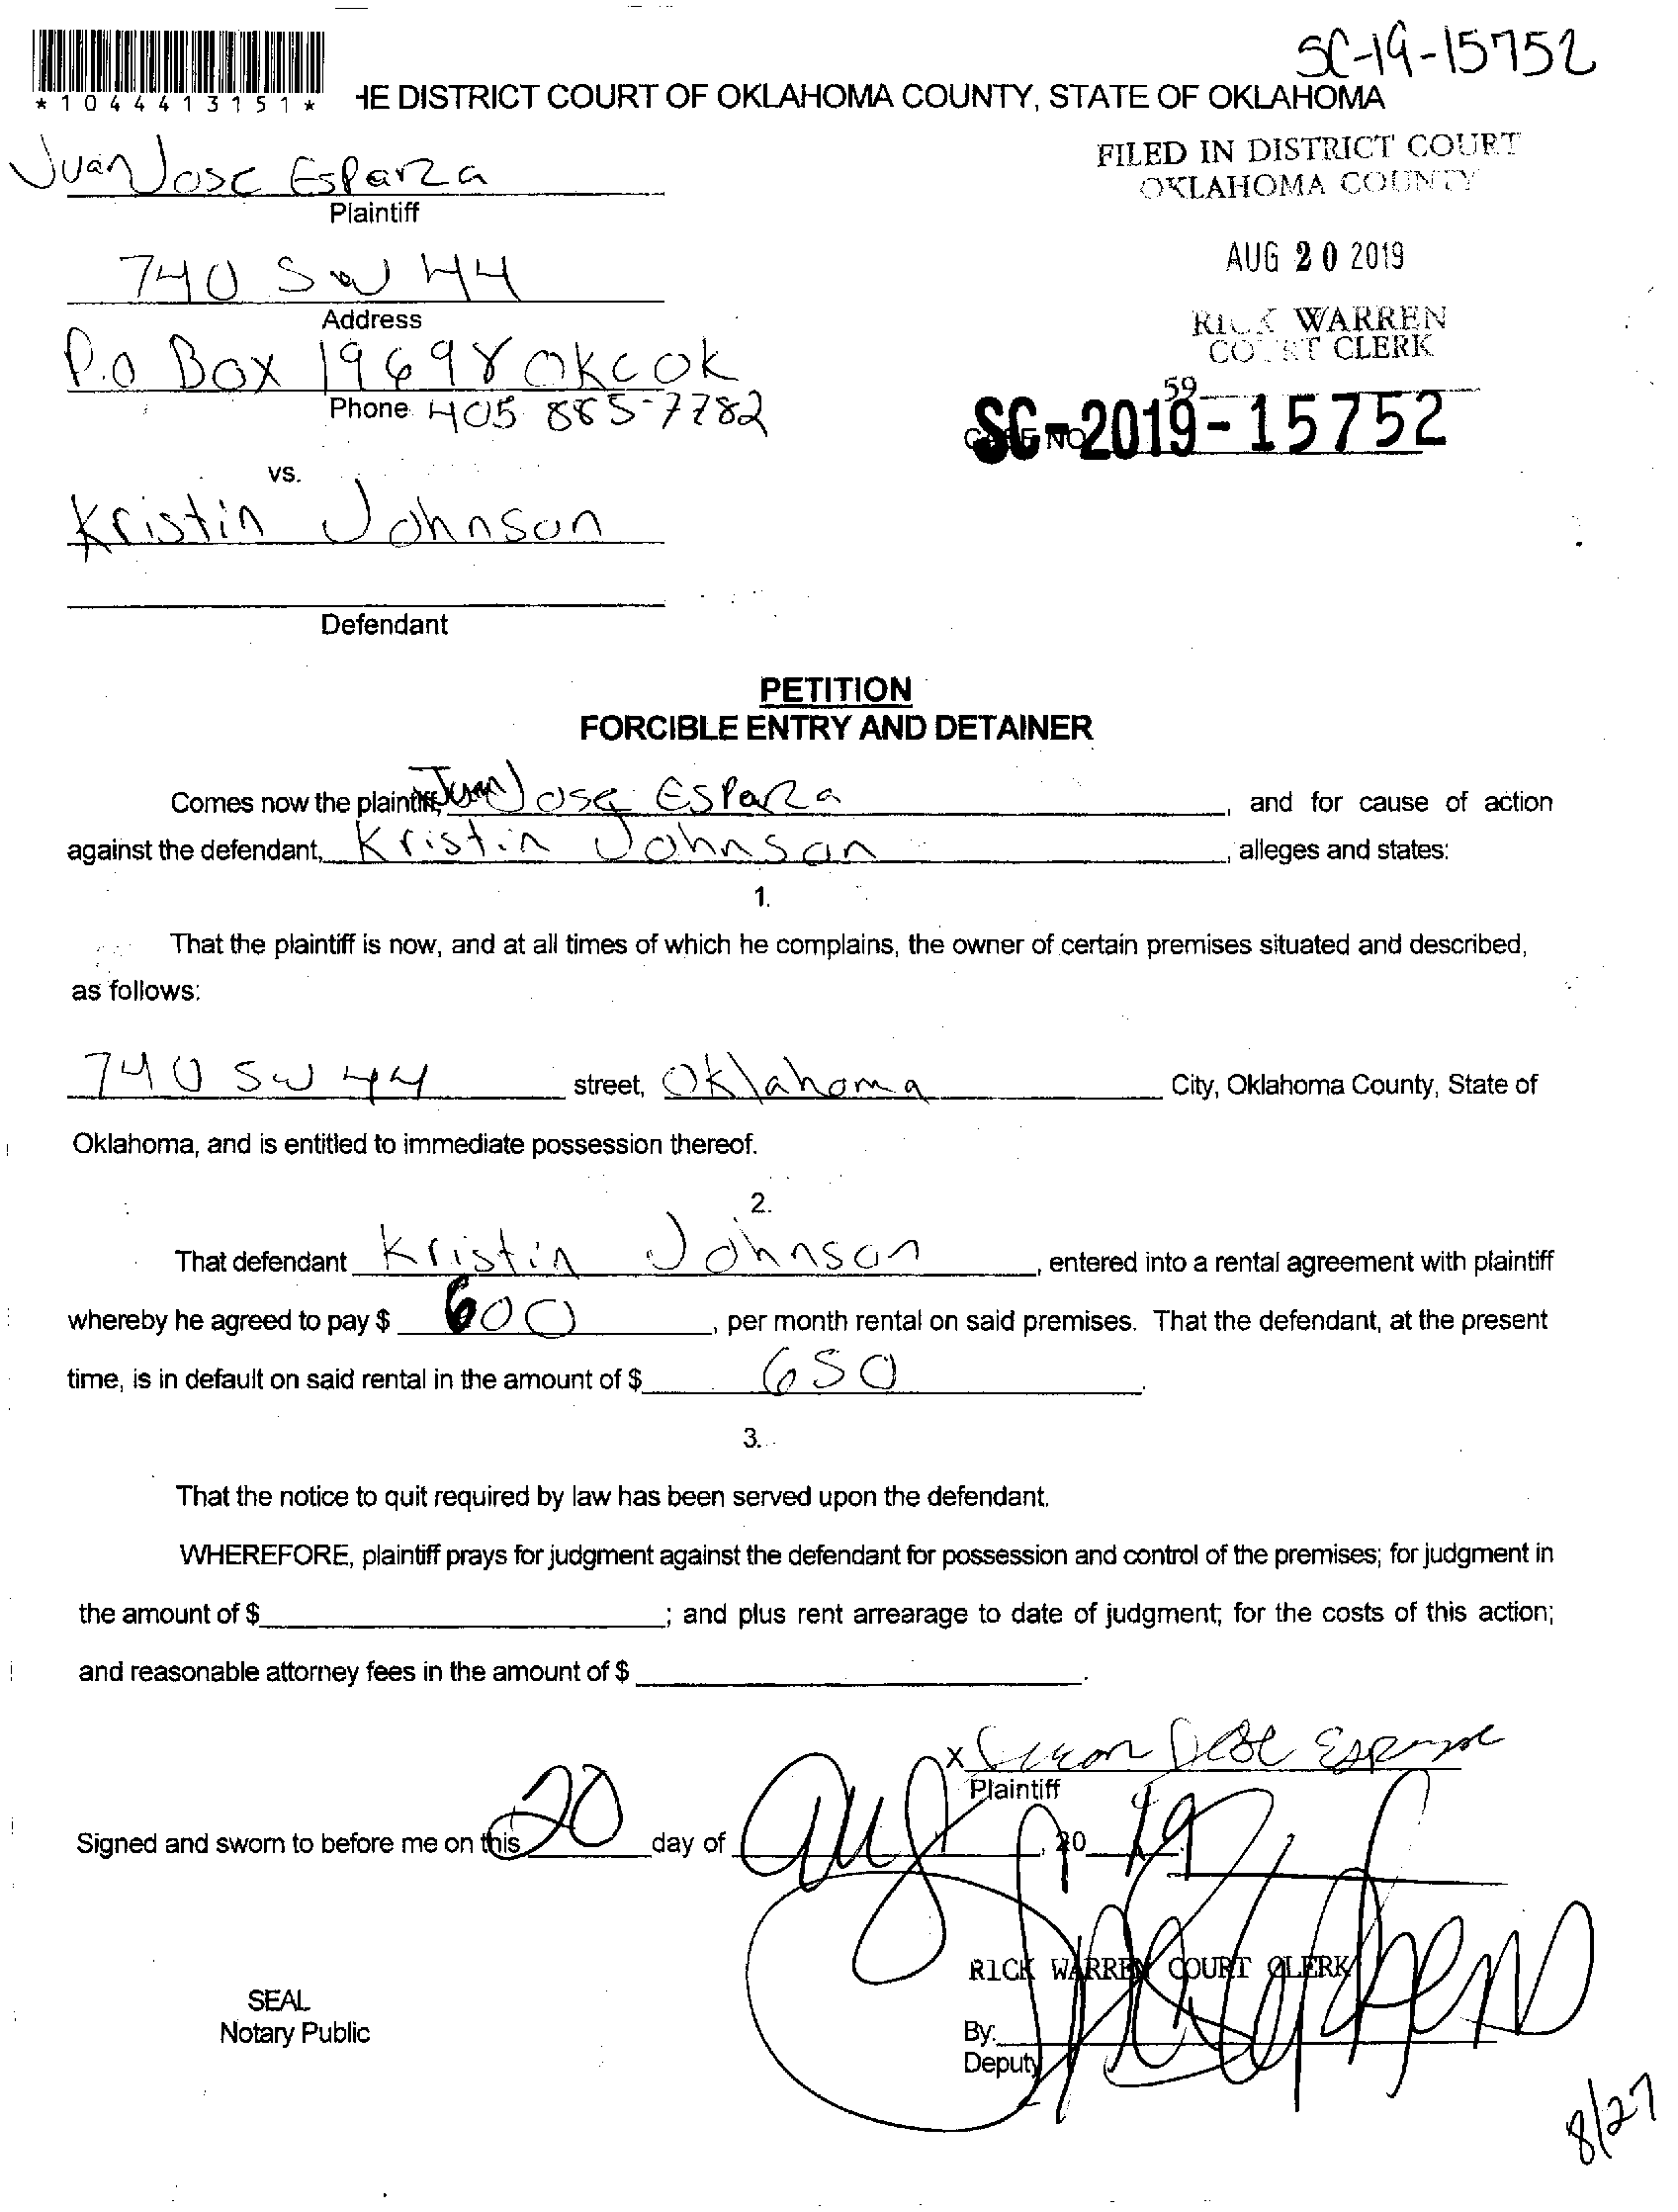 SC-19-15752
*1044413151*
HE DISTRICT COURT OF OKLAHOMA COUNTY, STATE OF OKLAHOMA
Juan Jose Esparza
Plaintiff
FILED IN DISTRICT COURT
OKLAHOMA COUNTY
740 SW 44
Address
AUG 20 2019
P.O Box 19698 OKC OK
Phone 405 885-7782
RICK WARREN
COURT CLERK
59
CASE NO. SC-2019-15752
vs.
Kristin Johnson
Defendant
PETITION
FORCIBLE ENTRY AND DETAINER
Comes now the plaintiff, Juan Jose Esparza, and for cause of action
against the defendant, Kristin Johnson, alleges and states:
1.
That the plaintiff is now, and at all times of which he complains, the owner of certain premises situated and described,
as follows:
740 SW 44 street, Oklahoma City, Oklahoma County, State of
Oklahoma, and is entitled to immediate possession thereof.
2.
That defendant Kristin Johnson, entered into a rental agreement with plaintiff
whereby he agreed to pay $ 600, per month rental on said premises. That the defendant, at the present
time, is in default on said rental in the amount of $ 650.
3.
That the notice to quit required by law has been served upon the defendant.
WHEREFORE, plaintiff prays for judgment against the defendant for possession and control of the premises; for judgment in
the amount of $ ; and plus rent arrearage to date of judgment; for the costs of this action;
and reasonable attorney fees in the amount of $ .
X Juan Jose Esparza
Plaintiff
Signed and sworn to before me on this 20 day of Aug, 2019.
RICK WARREN COURT CLERK
SEAL
Notary Public
By:
Deputy
8/27